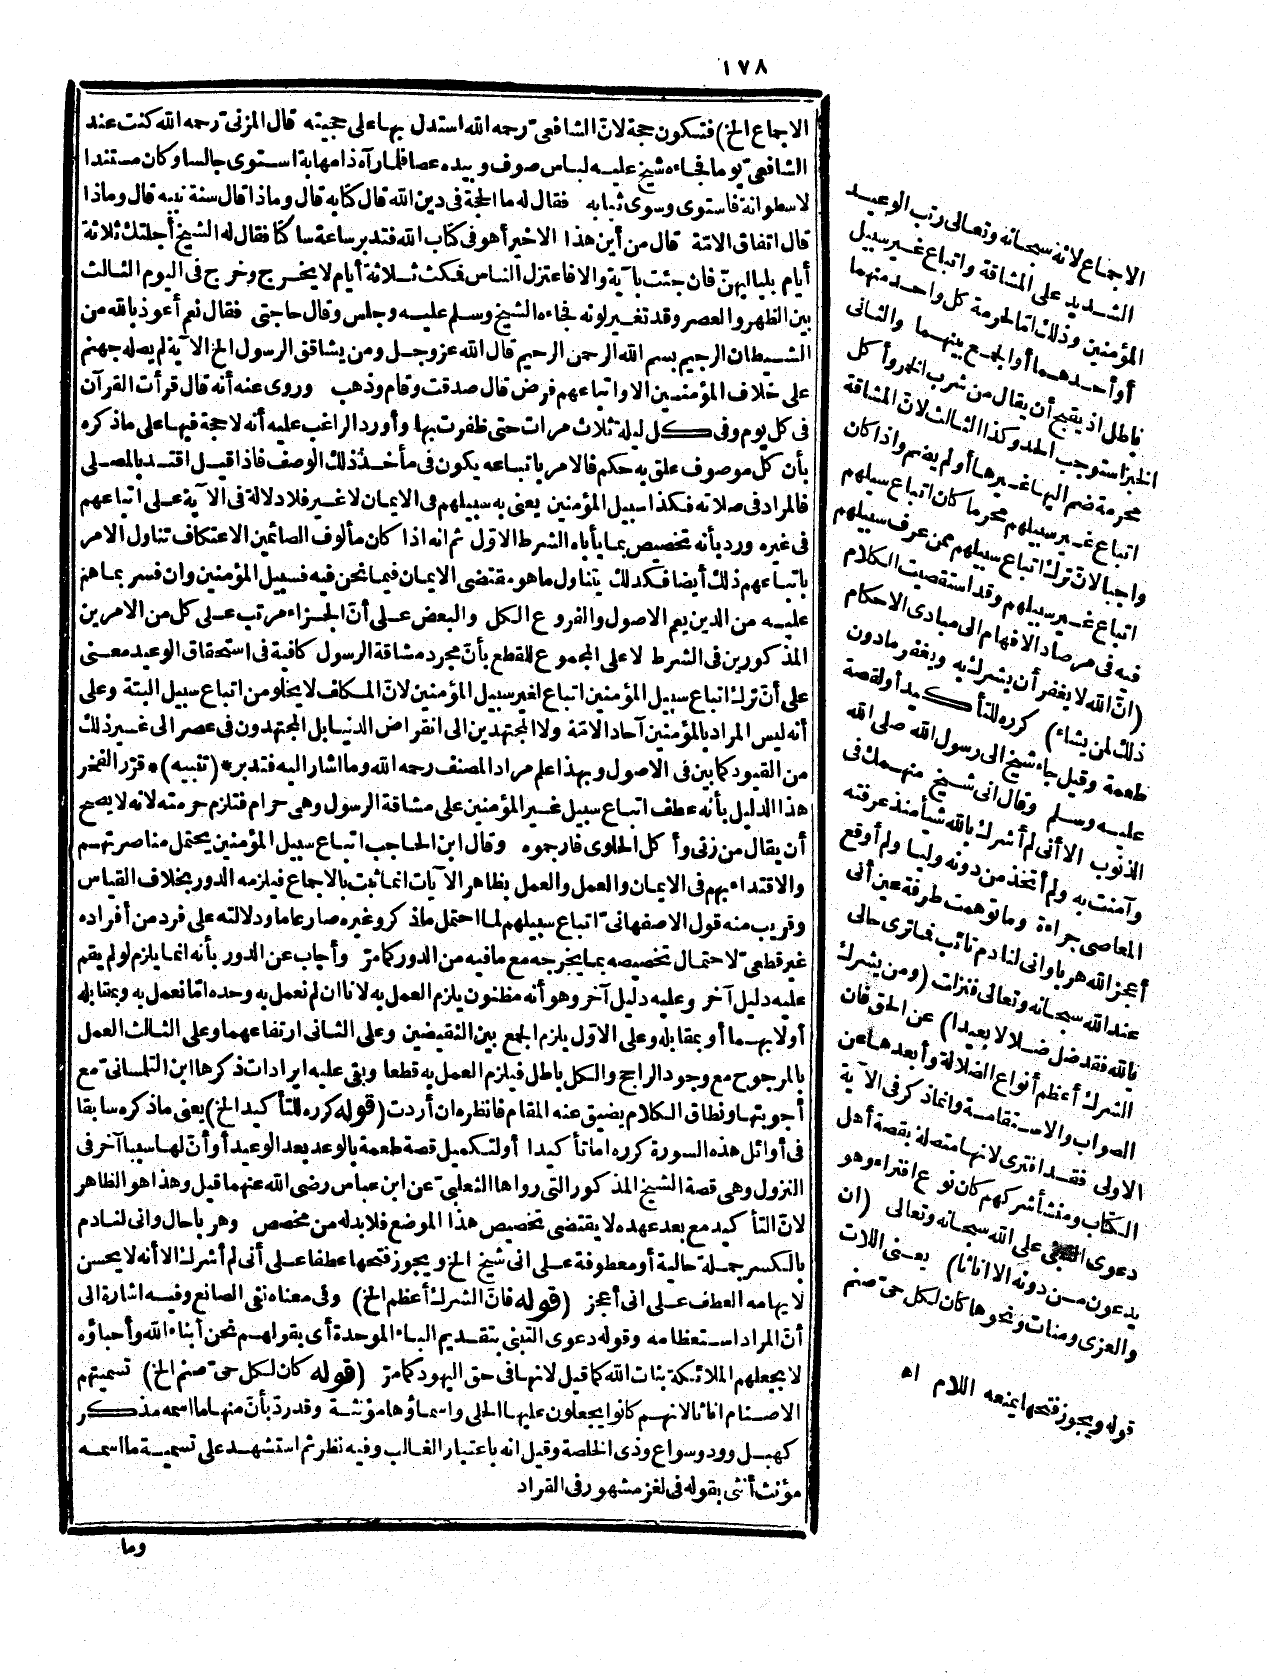 ١٧٨
الاجماع الخ) فتكون حجة لانّ الشافعيّ رحمه الله استدل بهاعلى حجيته قال المزنيّ رحمه الله كنت عند
الشافعيّ يوما فجاءه شيخ عليه لباس صوف وبيده عصا فلما رآه ذا مهابة استوى جالسا وكان مستندا
لاسطوانة فاستوى وسوّى ثيابه فقال له ما الحجة في دين الله قال كتابه قال وماذا قال سنة نبيه قال وماذا
قال اتفاق الامّة قال من أين هذا الاخير أهو في كتاب الله فتدبر ساعة ساكتا فقال له الشيخ أجلتك ثلاثة
أيام بلياليهنّ فان جئت بآية والا فاعتزل الناس فمكث ثلاثة أيام لا يخرج وخرج في اليوم الثالث
بين الظهر والعصر وقد تغير لونه فجاءه الشيخ وسلم عليه وجلس وقال حاجتي فقال نعم أعوذ بالله من
الشيطان الرجيم بسم الله الرحمن الرحيم قال الله عز وجل ومن يشاقق الرسول الخ الآية لم يصله جهنم
على خلاف المؤمنين الا واتباعهم فرض قال صدقت وقام وذهب وروى عنه أنه قال قرأت القرآن
في كل يوم وفي كل ليلة ثلاث مرات حتى ظفرت بها وأورد الراغب عليه أنه لا حجة فيها على ما ذكره
بأن كل موصوف علق به حكم فالامر باتباعه يكون في مأخذ ذلك الوصف فاذا قيل اقتد بالمصلى
فالمراد في صلاته فكذا سبيل المؤمنين يعني به سبيلهم في الايمان لا غير فلا دلالة في الآية على اتباعهم
في غيره ورد بأنه تخصيص بما يأباه الشرط الاوّل ثم انه اذا كان مألوف الصائمين الاعتكاف تناول الامر
باتباعهم ذلك أيضا فكذلك يتناول ما هو مقتضى الايمان فيما نحن فيه فسبيل المؤمنين وان فسر بما هم
عليه من الدين يعم الاصول والفروع الكل والبعض على أنّ الجزاء مرتب على كل من الامرين
المذكورين في الشرط لا على المجموع للقطع بأنّ مجرد مشاقة الرسول كافية في استحقاق الوعيد معنى
على أنّ ترك اتباع سبيل المؤمنين اتباع لغير سبيل المؤمنين لانّ المكلف لا يخلو من اتباع سبيل البتة وعلى
أنه ليس المراد بالمؤمنين آحاد الامّة ولا المجتهدين الى انقراض الدنيا بل المجتهدون في عصر الى غير ذلك
من القيود كما بين في الاصول وبهذا علم مراد المصنف رحمه الله وما اشار اليه فتدبر *(تنبيه)* قرّر الفخر
هذا الدليل بأنه عطف اتباع سبيل غير المؤمنين على مشاقة الرسول وهي حرام فتلزم حرمته لانه لا يصح
أن يقال من زنى وأكل الحلوى فارجموه وقال ابن الحاجب اتباع سبيل المؤمنين يحتمل مناصرتهم
والاقتداء بهم في الايمان والعمل والعمل بظاهر الآيات انما ثبت بالاجماع فيلزمه الدور بخلاف القياس
وقريب منه قول الاصفهانيّ اتباع سبيلهم لما احتمل ما ذكر وغيره صار عاما ودلالته على فرد من أفراده
غير قطعيّ لاحتمال تخصيصه بما يخرجه مع ما فيه من الدور كما مرّ وأجاب عن الدور بأنه انما يلزم لو لم يقم
عليه دليل آخر وعليه دليل آخر وهو أنه مظنون يلزم العمل به لانا ان لم نعمل به وحده امّا نعمل به وبمقابله
أولا بهما أو بمقابله وعلى الاوّل يلزم الجمع بين النقيضين وعلى الثاني ارتفاعهما وعلى الثالث العمل
بالمرجوح مع وجود الراجح والكل باطل فيلزم العمل به قطعا وبقي عليه ايرادات ذكرها ابن التلمسانيّ مع
أجوبتها ونطاق الكلام يضيق عنه المقام فانظره ان أردت (قوله كرره للتأكيد الخ) يعني ما ذكره سابقا
في أوائل هذه السورة كرره اما تأكيدا أو لتكميل قصة طعمة بالوعد بعد الوعيد أو أنّ لها سببا آخر في
النزول وهي قصة الشيخ المذكور التي رواها الثعلبيّ عن ابن عباس رضي الله عنهما قيل وهذا هو الظاهر
لانّ التأكيد مع بعد عهده لا يقتضي تخصيص هذا الموضع فلا بد له من مخصص وهر با حال واني لنادم
بالكسر جملة حالية أو معطوفة على اني شيخ الخ ويجوز فتحها عطفا على أني لم أشرك الا أنه لا يحسن
لايهامه العطف على اني أعجز (قوله فانّ الشرك أعظم الخ) وفي معناه نفي الصانع وفيه اشارة الى
أنّ المراد استعظامه وقوله دعوى التبني بتقديم الباء الموحدة أي بقولهم نحن أبناء الله وأحباؤه
لا بجعلهم الملائكة بنات الله كما قيل لانها في حق اليهود كما مرّ (قوله كان لكل حيّ صنم الخ) تسميتهم
الاصنام اناثا لانهم كانوا يجعلون عليها الحلي واسماؤها مؤنثة وقد ردّ بأنّ منها ما اسمه مذكر
كهبل وود وسواع وذي الخلصة وقيل انه باعتبار الغالب وفيه نظر ثم استشهد على تسمية ما اسمه
مؤنث أنثى بقوله في لغز مشهور في القراد
وما
الاجماع لانه سبحانه وتعالى رتب الوعيد
الشديد على المشاقة واتباع غير سبيل
المؤمنين وذلك امّا لحرمة كل واحد منهما
أو أحدهما أو الجمع بينهما والثاني
باطل اذ يقبح أن يقال من شرب الخمر وأكل
الخبز استوجب الحد وكذا الثالث لانّ المشاقة
محرمة ضم اليها غيرها أو لم يضم واذا كان
اتباع غير سبيلهم محرما كان اتباع سبيلهم
واجبا لانّ ترك اتباع سبيلهم ممن عرف سبيلهم
اتباع غير سبيلهم وقد استقصيت الكلام
فيه في مرصاد الافهام الى مبادى الاحكام
(انّ الله لا يغفر أن يشرك به ويغفر ما دون
ذلك لمن يشاء) كرره للتأكيد أو لقصة
طعمة وقيل جاء شيخ الى رسول الله صلى الله
عليه وسلم وقال اني شيخ منهمك في
الذنوب الا أني لم أشرك بالله شيأ منذ عرفته
وآمنت به ولم أتخذ من دونه وليا ولم أوقع
المعاصي جراءة وما توهمت طرفة عين أني
أعجز الله هربا واني لنادم تائب فما ترى حالي
عند الله سبحانه وتعالى فنزلت (ومن يشرك
بالله فقد ضل ضلالا بعيدا) عن الحق فان
الشرك أعظم أنواع الضلالة وأبعدها عن
الصواب والاستقامة وانما ذكر في الآية
الاولى فقد افترى لانها متصلة بقصة أهل
الكتاب ومنشأ شركهم كان نوع افتراء وهو
دعوى التبني على الله سبحانه وتعالى (ان
يدعون من دونه الا اناثا) يعني اللات
والعزى ومنات ونحوها كان لكل حيّ صنم
قوله ويجوز فتحها يمنعه اللام اه